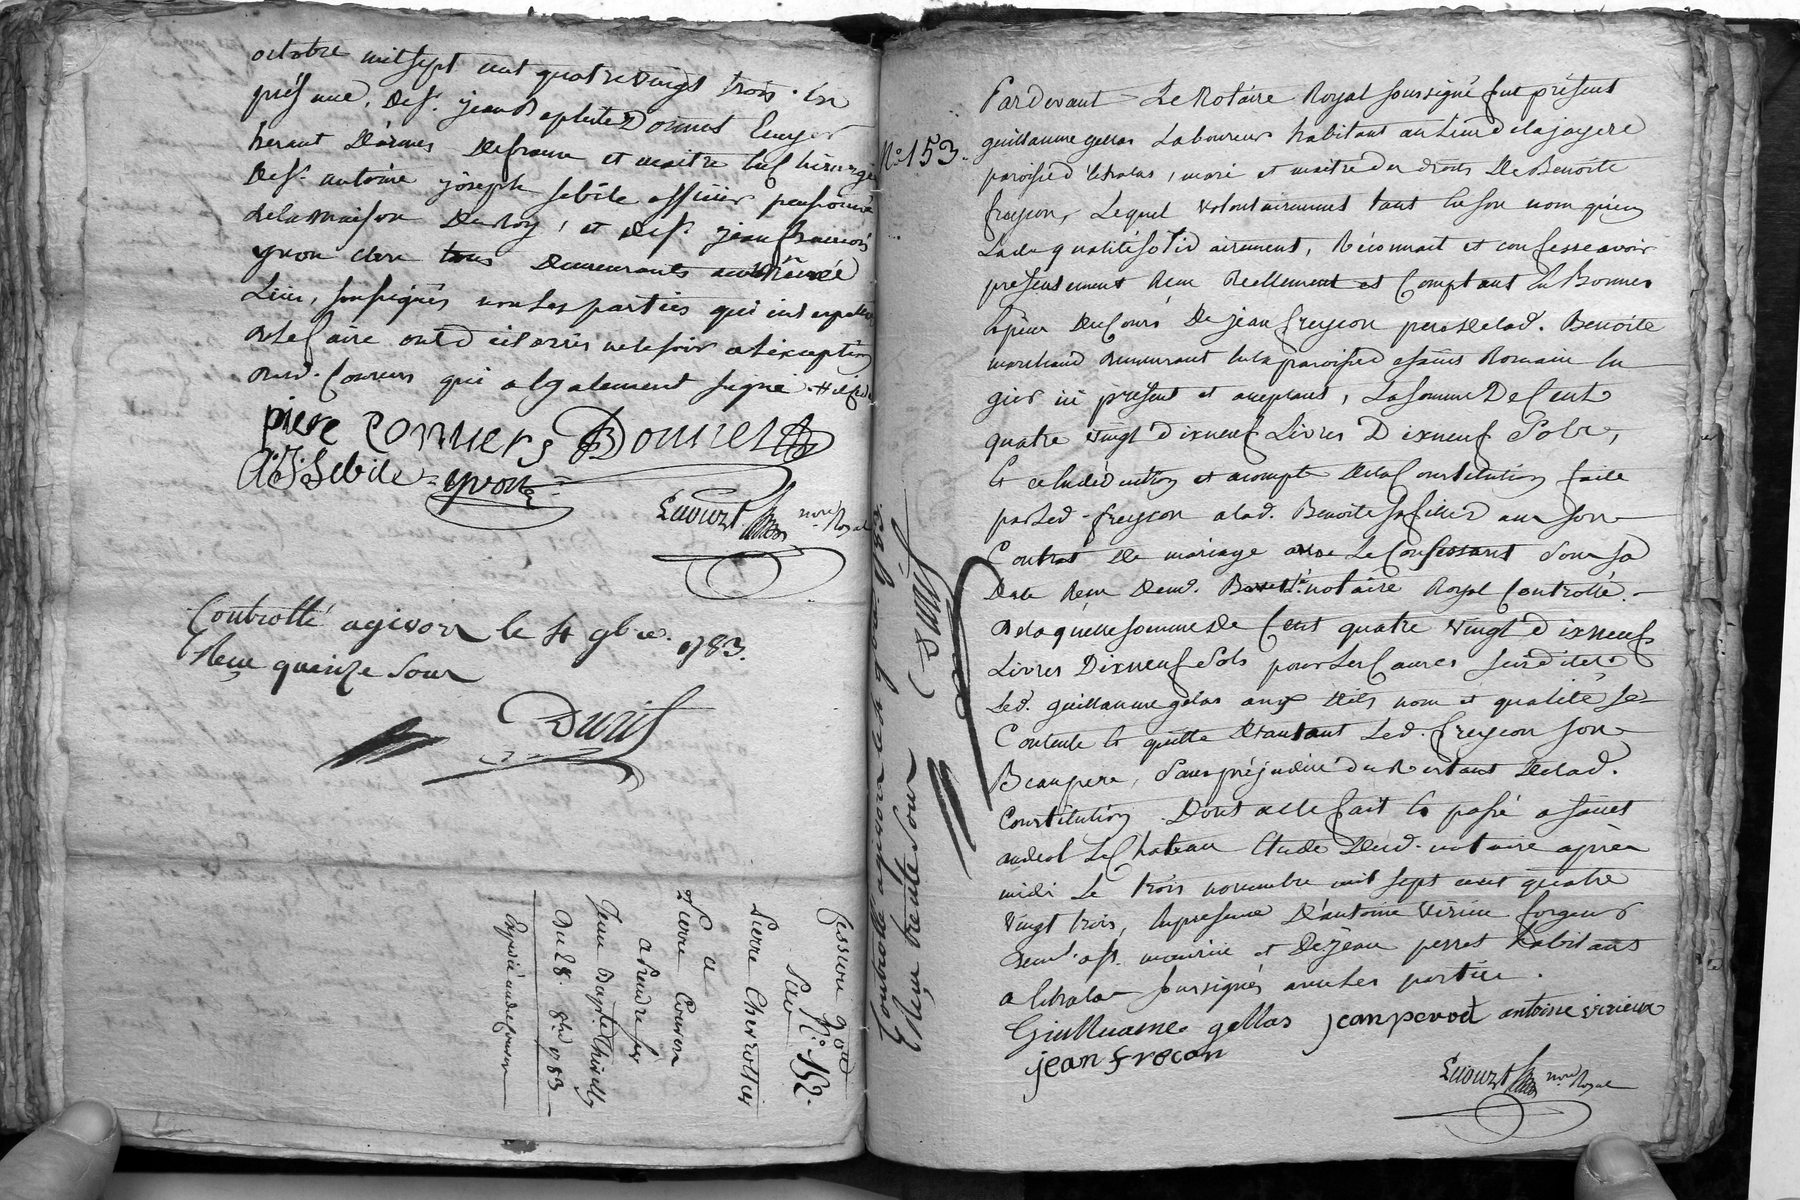 octobre mil sept cent quatre vingt trois. En
présence. De Sr. jean Baptiste Donnet Ecuyer
heraut D'armes De france et maitre en chirurgi
De Sr. antoine joseph sebile officier pensionné
de la maison Du roy, et de Sr. jean francois
yvon clerc tous Demeurants
Lieu, soussignés non les parties qui
De le faire ont declarés ne le savoir a l'exception
Dud. Coueurs qui a egalement signé
piere conuers Donnet
A: J: Sebile yvon
Luouzt nore Royal
Controllé a givors le 4 9bre. 1783.
Reçu quinze sous
Duril
Cession pour
Sieur
N.º 152.
Pierre Cherrottier
a
Pierre Couron
a Prendre sur
Jean Bapte. Thivilly
Du 28. 8bre 1783
Expédié aud Couron
Controllé a givors le 4 9bre. 1783.
Reçu trente sous
Duril
N.º 153.
Pardevant Le Notaire Royal soussigné fut présent
guillaume gellas Laboureur habitant au Lieu de la jayere
paroisse d'Echalas, mari et maitre des droits De Benoite
freycon, Lequel volontairement tant en son nom qu'en
Lade. qualité solidairement, Réconnait et confesse avoir
présentement Reçu Reellement et Comptant En Bonnes
Espèces Du Cours De jean freycon pere De lad. Benoite
marchand Demeurant en la paroisse de saint Romain en
gier ici présent et acceptant, La somme De Cent
quatre vingt Dixneuf Livres Dixneuf Sols,
Et ce En déduction et acompte De la Constitution faite
par Led. freycon a lad. Benoite sa fille dans son
Contrat De mariage avec Le Confessant Sous sa
Date Reçu Dud. notaire Royal Controllé.
De laquelle somme De Cent quatre vingt dixneuf
Livres Dixneuf Sols pour les Causes susdites
Led. guillaume gelas aux Dits nom et qualité se
Contente Et quitte D'autant Led. freycon son
Beaupere, Sans préjudice Du Restant De lad.
Constitution. Dont acte fait Et passé a saint
andeol Le Chateau Etude Dud. notaire après
midi Le trois novembre mil sept cent quatre
vingt trois, En présence D'antoine virieu forgeur
et De jean perrot habitans
a Echalas soussignés avec les parties.
Giulluame gellas jean perod antoine virieux
jean frecon
Luouzt nore Royal